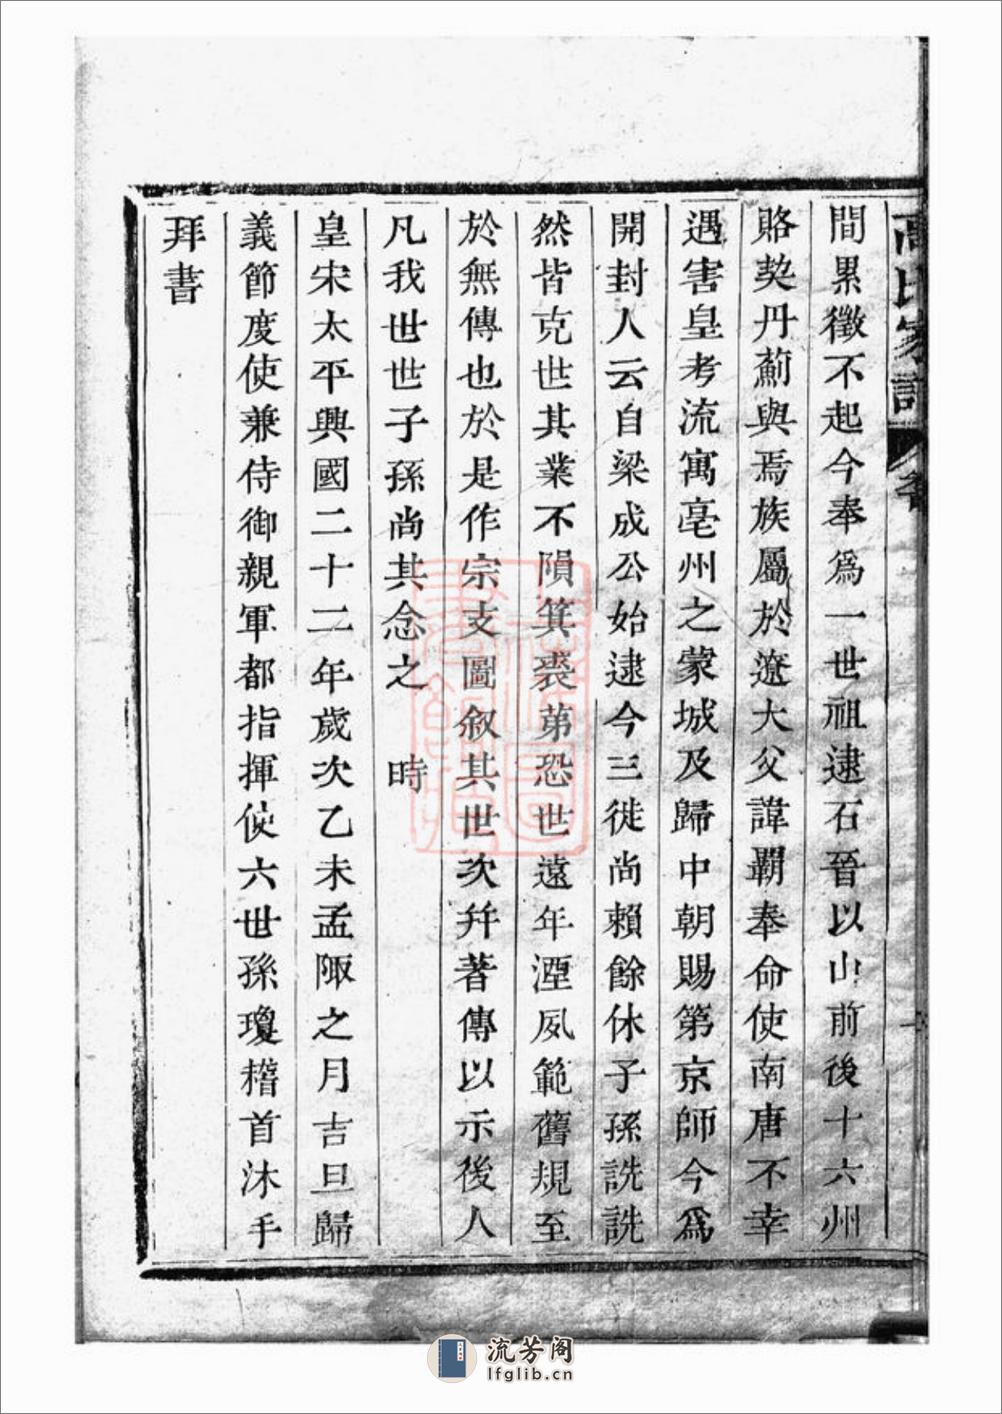 高氏家譜
間累徵不起今奉爲一世祖逮石晉以山前後十六州
賂契丹薊與焉族屬於遼大父諱覇奉命使南唐不幸
遇害皇考流寓亳州之蒙城及歸中朝賜第京師今爲
開封人云自梁成公始逮今三徙尚賴餘休子孫詵詵
然皆克世其業不隕箕裘第恐世遠年湮風範舊規至
於無傳也於是作宗支圖叙其世次幷著傳以示後人
凡我世世子孫尚其念之 時
皇宋太平興國二十二年歲次乙未孟陬之月吉旦歸
義節度使兼侍御親軍都指揮使六世孫瓊稽首沐手
拜書
流芳阁
lfglib.cn